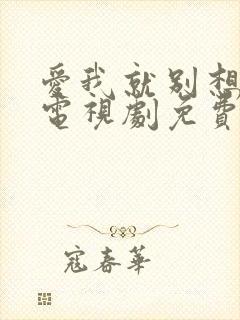 愛我就別想
電視劇免費
寇春華